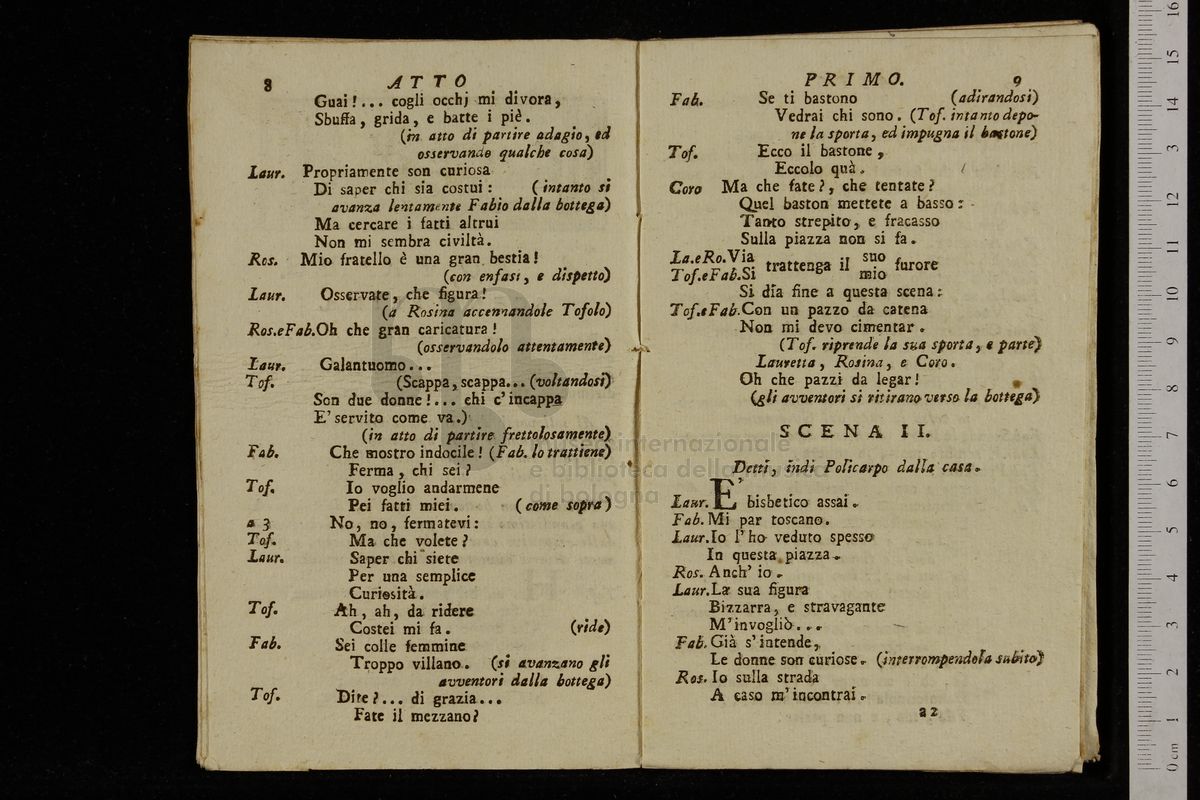 8 ATTO
Guai!... cogli occhj mi divora,
Sbuffa, grida, e batte i piè.
(in atto di partire adagio, ed
osservando qualche cosa)
Laur. Propriamente son curiosa
Di saper chi sia costui: (intanto si
avanza lentamente Fabio dalla bottega)
Ma cercare i fatti altrui
Non mi sembra civiltà.
Ros. Mio fratello è una gran bestia!
(con enfasi, e dispetto)
Laur. Osservate, che figura!
(a Rosina accennandole Tofolo)
Ros.eFab.Oh che gran caricatura!
(osservandolo attentamente)
Laur. Galantuomo...
Tof. (Scappa, scappa... (voltandosi)
Son due donne!... chi c'incappa
E' servito come va.)
(in atto di partire frettolosamente)
Fab. Che mostro indocile! (Fab. lo trattiene)
Ferma, chi sei?
Tof. Io voglio andarmene
Pei fatti miei. (come sopra)
a 3 No, no, fermatevi:
Tof. Ma che volete?
Laur. Saper chi siete
Per una semplice
Curiosità.
Tof. Ah, ah, da ridere
Costei mi fa. (ride)
Fab. Sei colle femmine
Troppo villano. (si avanzano gli
avventori dalla bottega)
Tof. Dite?... di grazia...
Fate il mezzano?
PRIMO. 9
Fab. Se ti bastono (adirandosi)
Vedrai chi sono. (Tof. intanto depo-
ne la sporta, ed impugna il bastone)
Tof. Ecco il bastone,
Eccolo quà.
Coro Ma che fate?, che tentate?
Quel baston mettete a basso:
Tanto strepito, e fracasso
Sulla piazza non si fa.
La.eRo.Via trattenga il suo furore
Tof.eFab.Si mio
Si dia fine a questa scena:
Tof.eFab.Con un pazzo da catena
Non mi devo cimentar.
(Tof. riprende la sua sporta, e parte)
Lauretta, Rosina, e Coro.
Oh che pazzi da legar!
(gli avventori si ritirano verso la bottega)
SCENA II.
Detti, indi Policarpo dalla casa.
Laur. E' bisbetico assai.
Fab. Mi par toscano.
Laur.Io l'ho veduto spesso
In questa piazza.
Ros. Anch' io.
Laur.La sua figura
Bizzarra, e stravagante
M'invogliò...
Fab. Già s'intende,
Le donne son curiose. (interrompendola subito)
Ros. Io sulla strada
A caso m'incontrai.
a2
museo internazionale
e biblioteca della musica
di bologna
0 cm 1 2 3 4 5 6 7 8 9 10 11 12 13 14 15 16